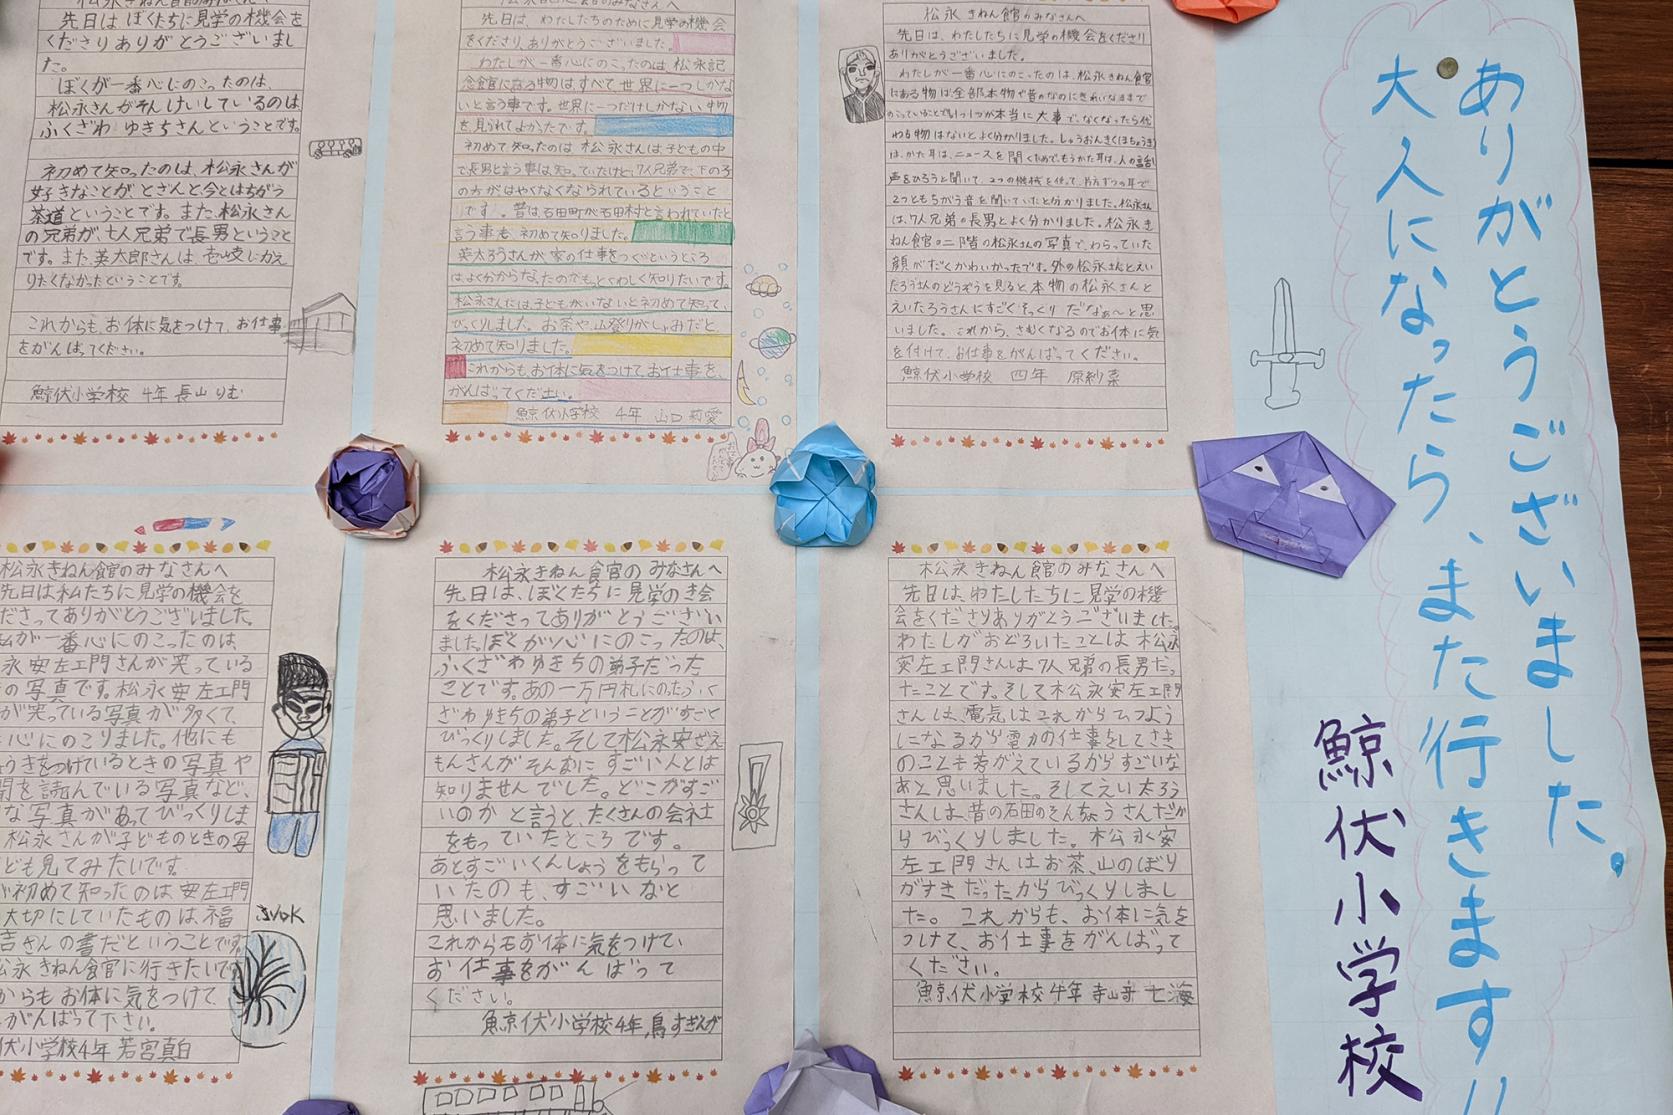 先日は ぼくたちに見学の機会を
くださりありがとうございまし
た。
ぼくが一番心にのこったのは、
松永さんがそんけいしているのは
ふくざわ ゆきちさんということです。
初めて知ったのは、松永さんが
好きなことが、とざんと今とはちがう
茶道ということです。また、松永さん
の兄弟が、七人兄弟で長男ということ
です。また、英太郎さんは、壱岐にかえ
りたくなかったということです。
これからも、お体に気をつけて、お仕事
をがんばってください。
鯨伏小学校 4年 長山 りむ
先日は、わたしたちのために見学の機会
をくださり、ありがとうございました。
わたしが一番心にのこったのは、松永記
念館にある物は、すべて世界に一つしかな
いと言う事です。世界に一つだけしかない物
を、見られてよかったです。
初めて知ったのは 松永さんは子どもの中
で長男と言う事は知っていたけど、7人兄弟で下の子
の方がはやくなくなられているということ
です。昔は石田町が石田村と言われていたと
言う事も、初めて知りました。
英太ろうさんが、家の仕事をつぐというところ
は、よく分からなったのでもっとくわしく知りたいです。
松永さんには子どもがいないと初めて知って、
びっくりしました。お茶や、山登りがしゅみだと、
初めて知りました。
これからも、お体に気をつけて、お仕事を、
がんばってください。
鯨伏小学校 4年 山口 莉愛
松永 きねん館のみなさんへ
先日は、わたしたちに見学の機会をくださり
ありがとうございました。
わたしが一番心にのこったのは、松永きねん館
にある物は全部本物で昔のなのにきれいなままで
のこっていがとても1つ1つが本当に大事で、なくなったら代
わる物はないとよく分かりました。しゅうおんきくほちょうき)
は、かた耳は、ニュースを聞くためで、もうかた耳は、人の話
声をひろうと聞いて、2つの機械を使って、片方ずつの耳で
2つともちがう音を聞いていたと分かりました。松永さん
は、7人兄弟の長男とよく分かりました。松永き
ねん館の二階の松永さんの写真で、わらっていた
顔がだくかわいかったです。外の松永さんとえい
たろうさんのどうぞうを見ると本物の松永さんと
えいたろうさんにすごくそっくりだなぁ〜と思
いました。これから、さむくなるのでお体に気
を付けて、お仕事をがんばってください。
鯨伏小学校 四年 原紗菜
松永きねん館のみなさんへ
先日は私たちに見学の機会を
ださってありがとうございました。
私が一番心にのこったのは、
永安左エ門さんが笑っている
の写真です。松永安左エ門
が笑っている写真が多くて、
心にのこりました。他にも
うきをつけているときの写真や
聞を読んでいる写真など、
な写真があってびっくりしま
松永さんが子どものときの写
ども見てみたいです。
初めて知ったのは 安左エ門
大切にしていたものは、福
吉さんの書だということです。
松永きねん館に行きたいで
からもお体に気をつけて、
がんばって下さい。
伏小学校4年 若宮真白
松永きねん館の みなさんへ
先日は、ぼくたちに見学のき会
をくださってありがとうござい
ました。ぼくが心にのこったのは、
ふくざわゆきちの弟子だった
ことです。あの一万円札にのったふく
ざわゆきちの弟子ということがすごく
びっくりしました。そして松永安ざえ
もんさんがそんなにすごい人とは
知りませんでした。どこがすご
いのかと言うと、たくさんの会社
をもっていたところです。
あとすごいくんしょうをもらって
いたのも、すごいなと
思いました。
これからもお体に気をつけて、
お仕事をがんばって
ください。
鯨伏小学校4年
松永きねん館のみなさんへ
先日は、わたしたちに見学の機
会をくださりありがとうございました。
わたしがおどろいたことは松永
安左エ門さんは7人兄弟の長男だっ
たことです。そして松永安左エ門
さんは、電気はこれからひつよう
になるから電力の仕事をしてさき
のことも考がえているからすごいな
あと思いました。そしてえい太ろう
さんは、昔の石田のそんちょうさんだか
らびっくりしました。松永安
左エ門さんはお茶、山のぼり
がすきだったからびっくりしまし
た。これからも、お体に気を
つけて、お仕事をがんばって
ください。
鯨伏小学校4年 寺山奇 七海
ありがとうございました。
大人になったら、また行きます!!
鯨伏小学校